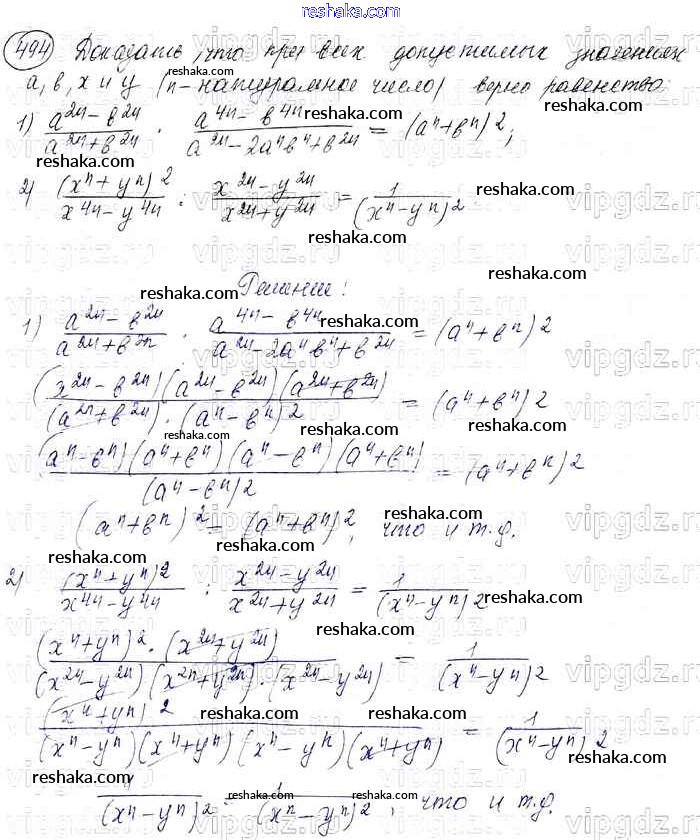 reshaka.com
494 Доказать, что при всех допустимых значениях
а, в, х и у (n - натуральное число) верно равенство
1) (a^2n - b^2n)/(a^2n + b^2n) · (a^4n - b^4n)/(a^2n - 2a^n b^n + b^2n) = (a^n + b^n)^2;
2) (x^n + y^n)^2/(x^4n - y^4n) : (x^2n - y^2n)/(x^2n + y^2n) = 1/(x^n - y^n)^2
Решение:
1) (a^2n - b^2n)/(a^2n + b^2n) · (a^4n - b^4n)/(a^2n - 2a^n b^n + b^2n) = (a^n + b^n)^2
(a^2n - b^2n)(a^2n - b^2n)(a^2n + b^2n)/((a^2n + b^2n) · (a^n - b^n)^2) = (a^n + b^n)^2
(a^n - b^n)(a^n + b^n)(a^n - b^n)(a^n + b^n)/(a^n - b^n)^2 = (a^n + b^n)^2
(a^n + b^n)^2 = (a^n + b^n)^2, что и т.д.
2) (x^n + y^n)^2/(x^4n - y^4n) : (x^2n - y^2n)/(x^2n + y^2n) = 1/(x^n - y^n)^2
(x^n + y^n)^2 · (x^2n + y^2n)/((x^2n - y^2n)(x^2n + y^2n) · (x^2n - y^2n)) = 1/(x^n - y^n)^2
(x^n + y^n)^2/((x^n - y^n)(x^n + y^n)(x^n - y^n)(x^n + y^n)) = 1/(x^n - y^n)^2
1/(x^n - y^n)^2 = 1/(x^n - y^n)^2, что и т.д.